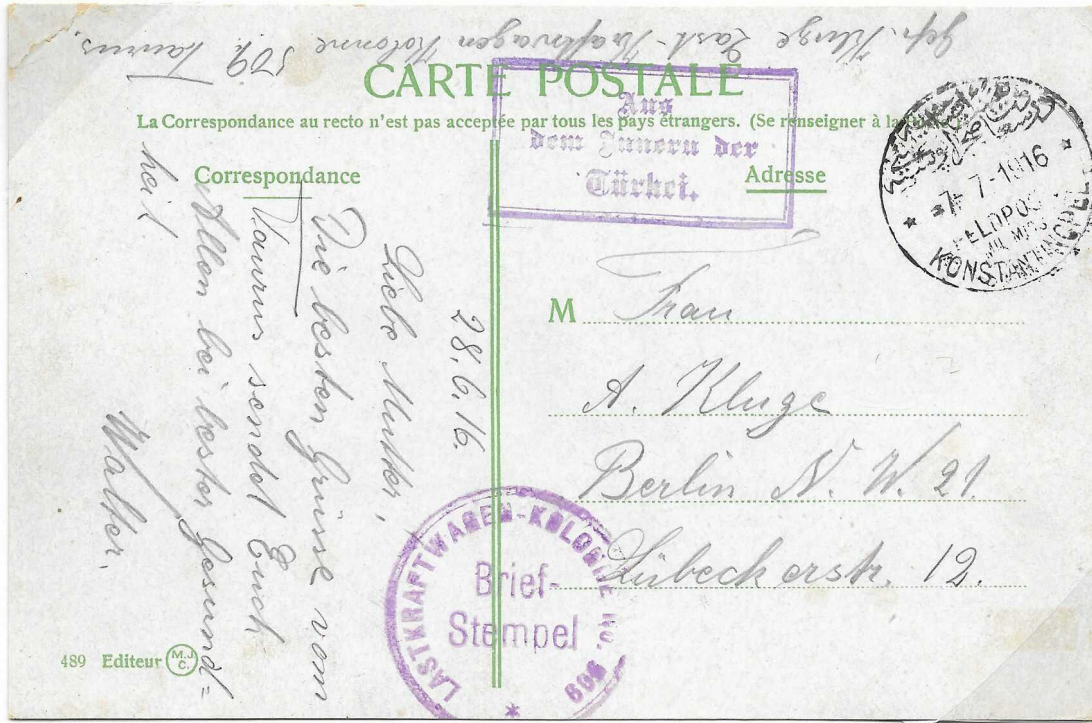 Gefr. Kluge Last-Kraftwagen Kolonne 509. Taurus.
CARTE POSTALE
La Correspondance au recto n'est pas acceptée par tous les pays étrangers. (Se renseigner à la
Aus
dem Innern der
Türkei.
7-7-1916
FELDPOST
MIL MISS
KONSTANTINOPEL
Correspondance
Adresse
28.6.16.
Liebe Mutter,
Die besten Grüsse vom
Taurus sendet Euch
Allen bei bester Gesund=
heit
Walter.
M Frau
A. Kluge
Berlin N. W. 21.
Lübeckerstr. 12.
LASTKRAFTWAGEN-KOLONNE No.
Brief-
Stempel
489 Editeur M.J.C.